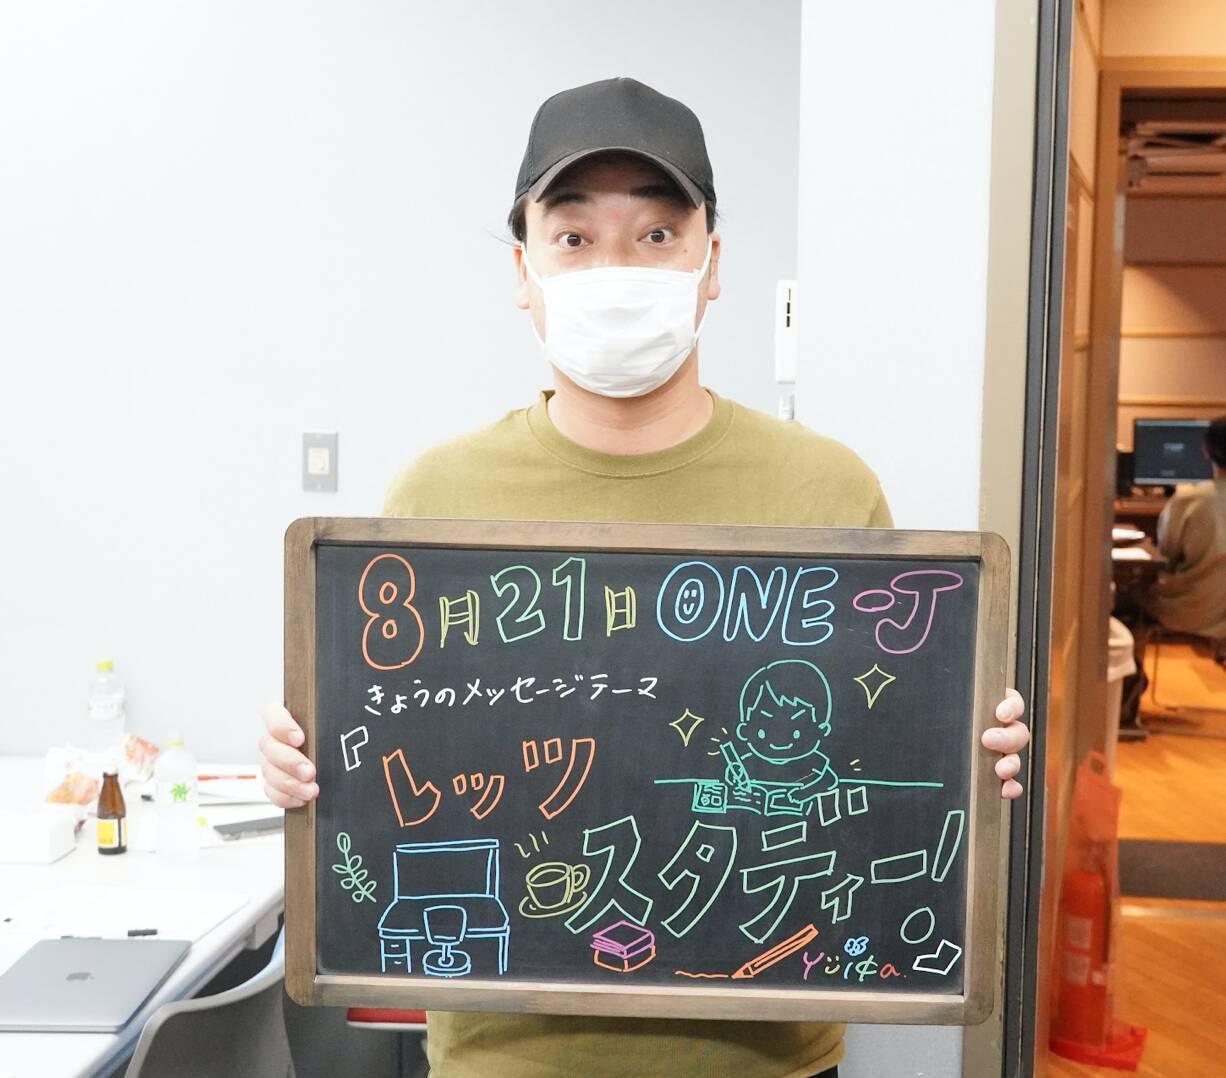 8月21日 ONE-J
きょうのメッセージテーマ
『レッツ
スタディー!』
Yuika.